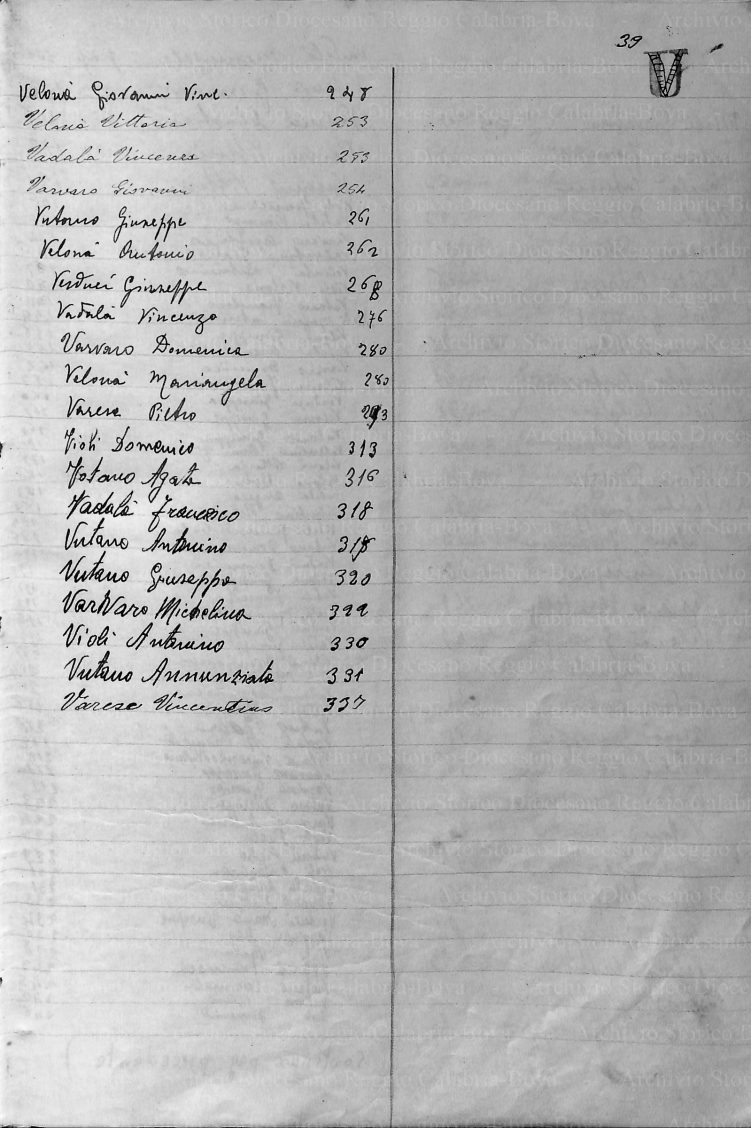 39
V
Velonà Giovanni Vinc. 248
Velonà Vittoria 253
Vadalà Vincenza 253
Varvaro Giovanni 254
Vutano Giuseppe 261
Velonà Antonio 262
Verduci Giuseppe 268
Vadalà Vincenzo 276
Varvaro Domenica 280
Velonà Mariangela 280
Varese Pietro 293
Violi Domenico 313
Votano Agata 316
Vadalà Francesco 318
Vutano Antonino 318
Vutano Giuseppa 320
Varvaro Michelina 322
Violi Antonino 330
Vutano Annunziata 331
Varese Vincentius 337
Archivio Storico Diocesano Reggio Calabria-Bova